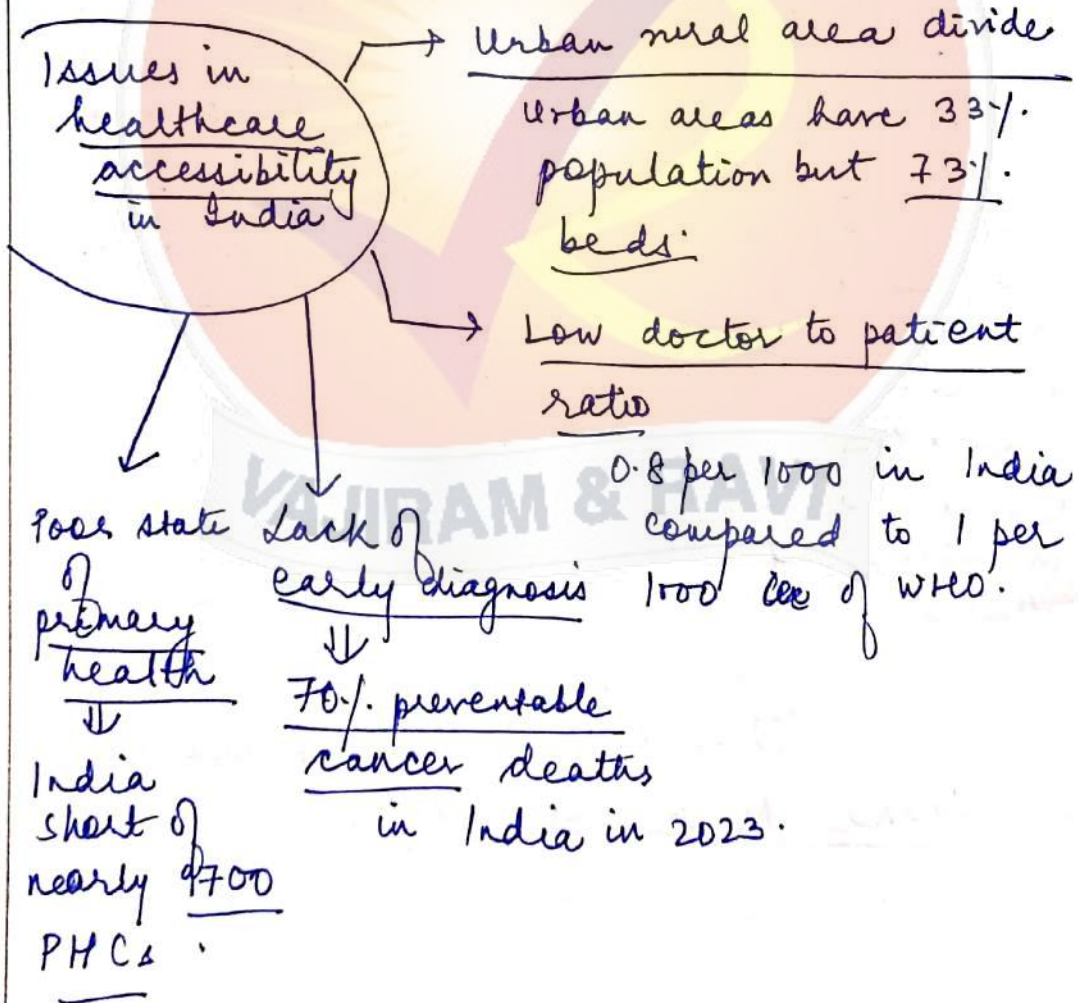 Issues in
healthcare
accessibility
in India
Urban rural area divide
Urban areas have 33%.
population but 73%.
beds.
Low doctor to patient
ratio
0.8 per 1000 in India
compared to 1 per
1000 of WHO.
Poor state
of
primary
health
India
short of
nearly 9700
PHCs.
Lack of
early diagnosis
70%. preventable
cancer deaths
in India in 2023.
VAJIRAM & RAVI